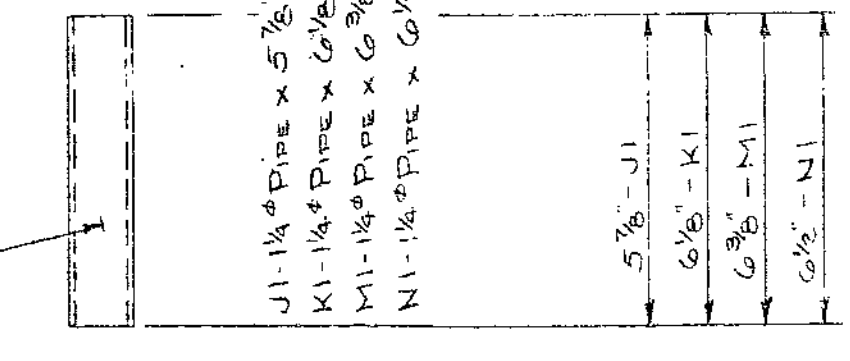 J1-1¼ᶲ PIPE x 5⅞
K1-1¼ᶲ PIPE x 6⅛
M1-1¼ᶲ PIPE x 6⅜
N1-1¼ᶲ PIPE x 6½
5⅞"-J1
6⅛"-K1
6⅜"-M1
6½"-N1